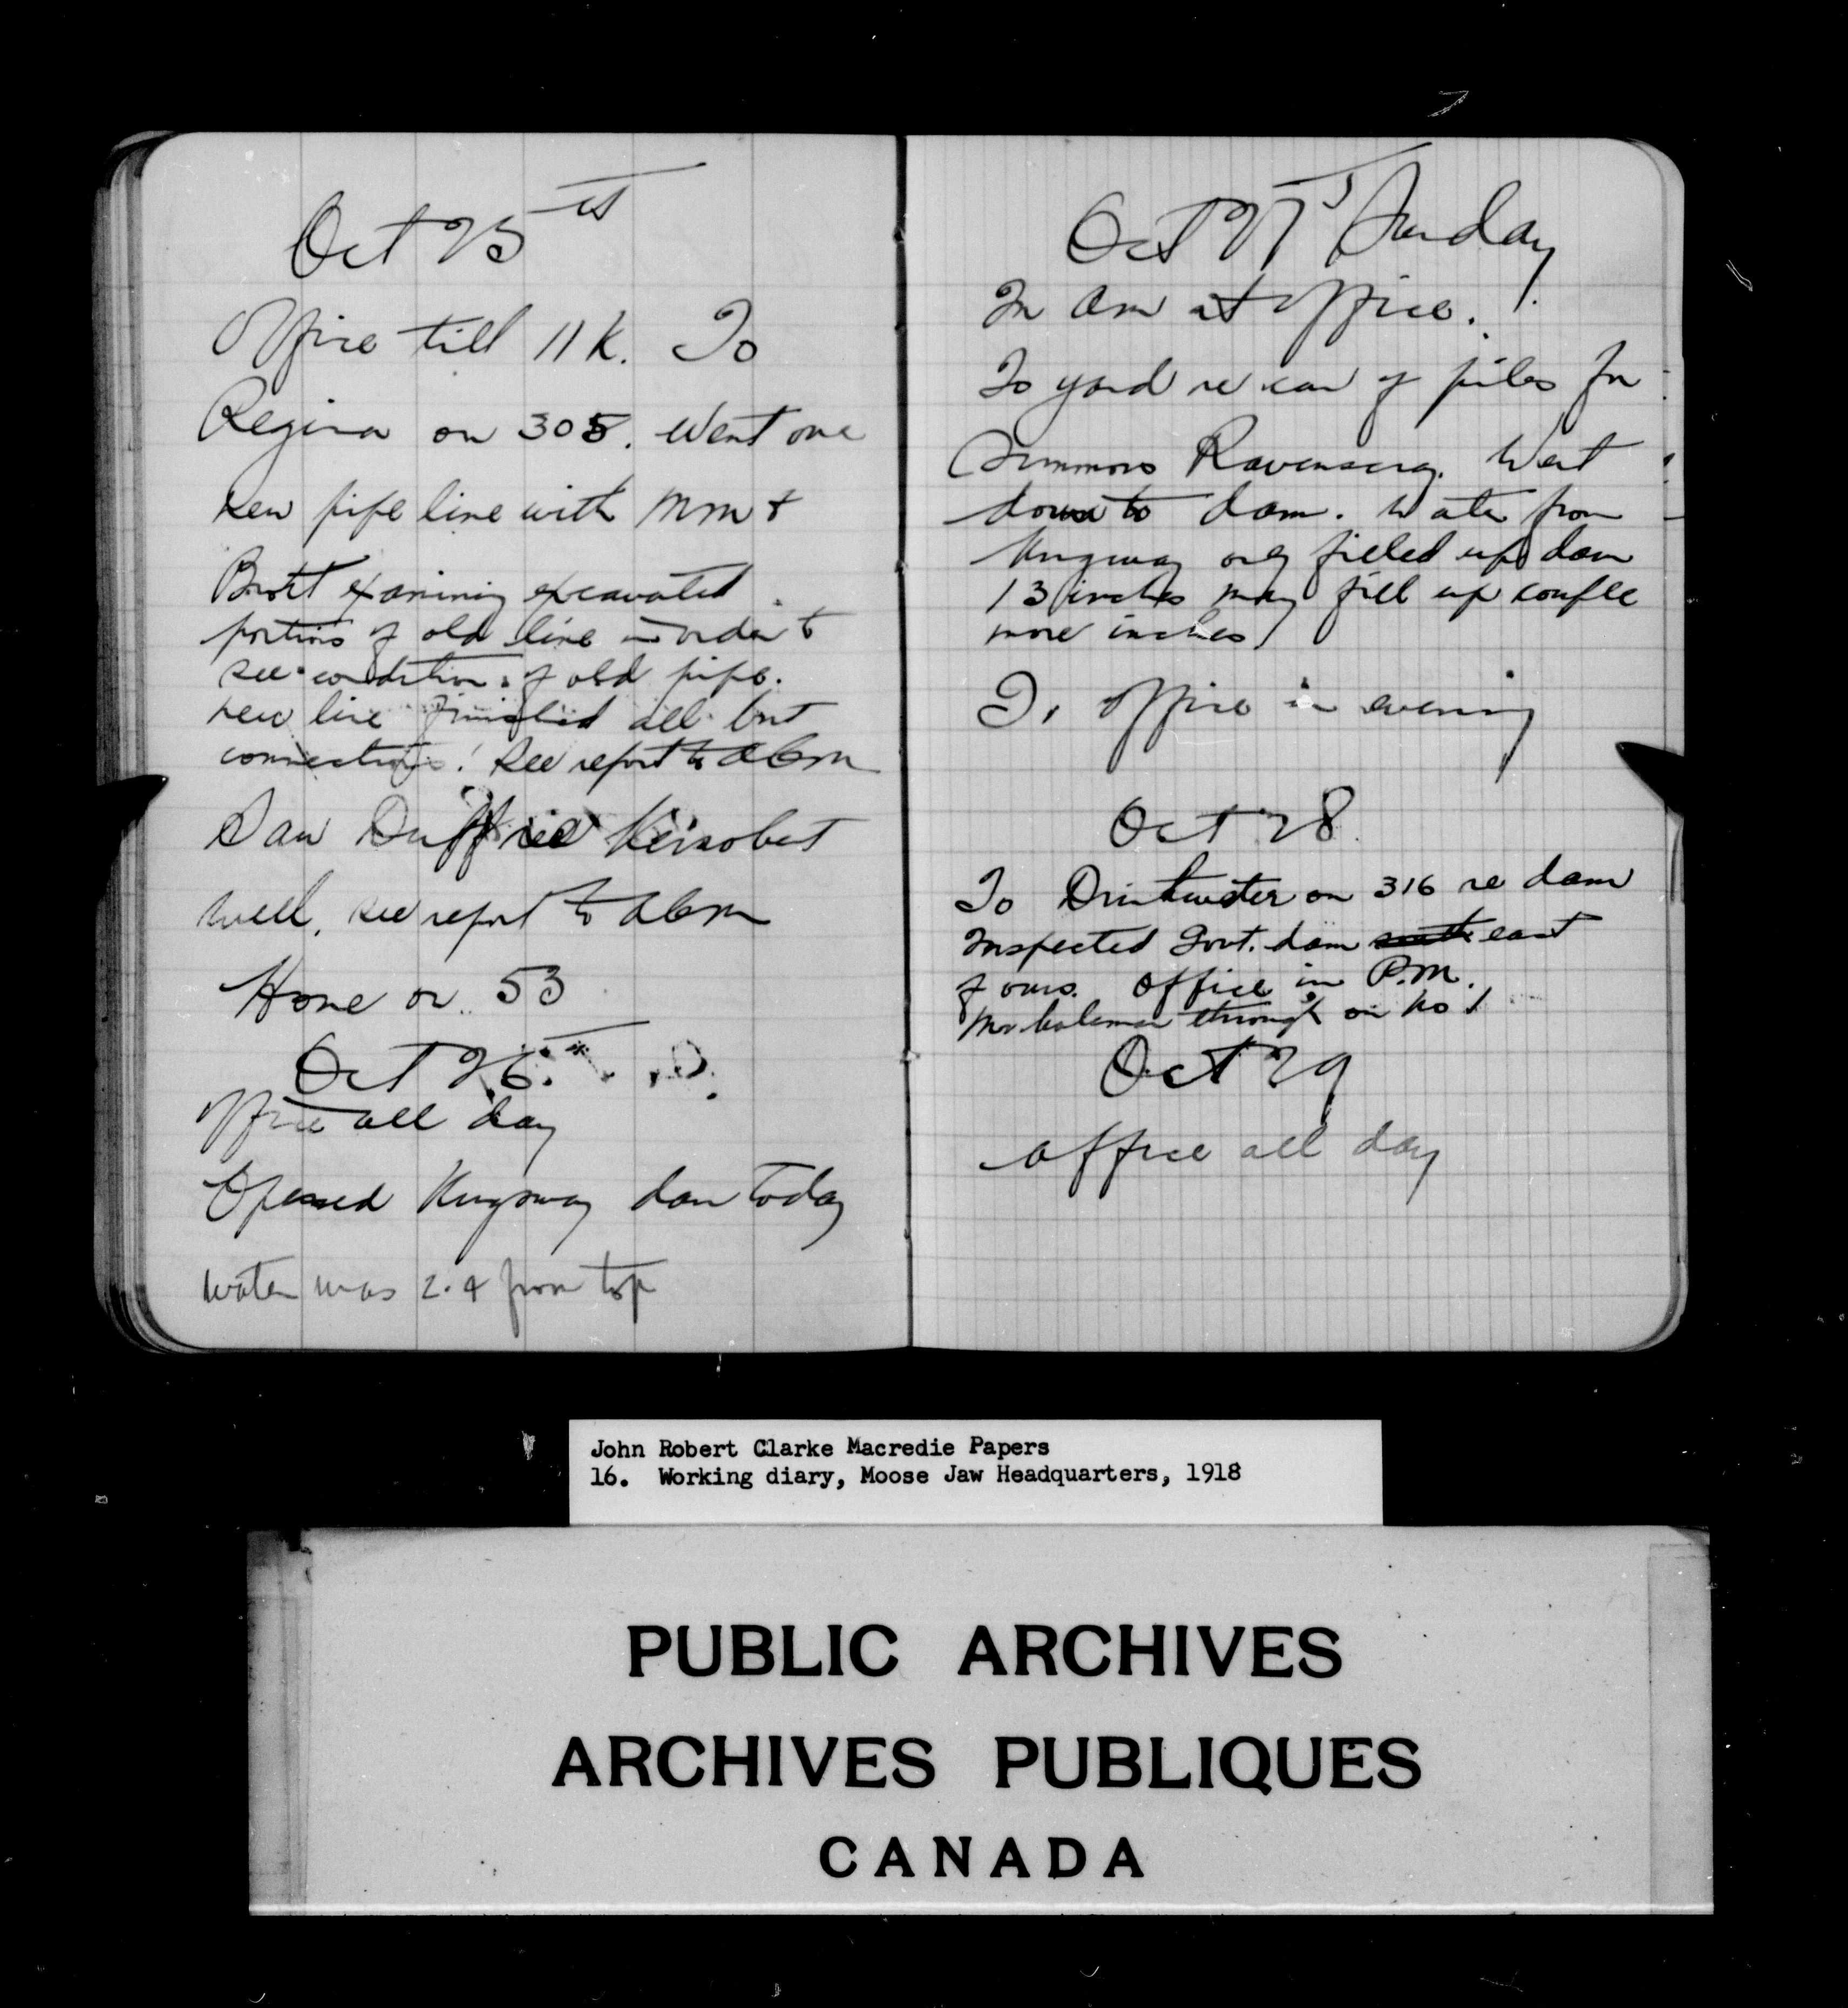 Oct 25th
Office till 11 K. To
Regina on 305. Went over
new pipe line with
Brott examining excavated
portions of old line in order to
see condition of old pipe.
new line finished all but
connections. See report to
Saw Duff re Kerrobert
well. see report to
Home on 53
Oct 26th
Office all day
Opened Kingsway dam today
water was 2.4 from top
Oct 27 Sunday
In am at office.
To yard re car of piles for
Simmons Ravenscrag. Went
down to dam. Water from
Kingsway only filled up dam
13 inches may fill up couple
more inches
To office in evening
Oct 28
To Drinkwater on 316 re dam
Inspected Govt. dam south east
of ours. Office in P.M.
Mr Coleman through on No 1
Oct 29
office all day
John Robert Clarke Macredie Papers
16. Working diary, Moose Jaw Headquarters, 1918
PUBLIC ARCHIVES
ARCHIVES PUBLIQUES
CANADA